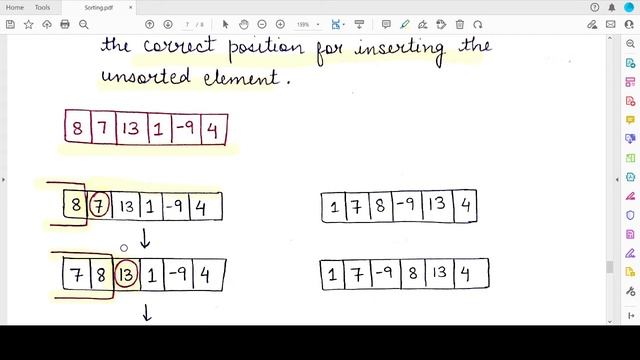 Home Tools Sorting.pdf ×
7 / 8 159%
the correct position for inserting the
unsorted element.
8 7 13 1 -9 4
8 7 13 1 -9 4
1 7 8 -9 13 4
7 8 13 1 -9 4
1 7 -9 8 13 4